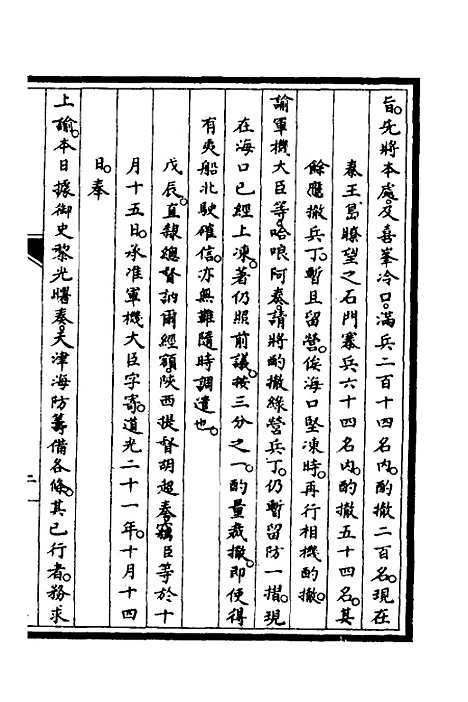 旨。先將本處。及喜峯冷口。滿兵二百十四名內。酌撤二百名。現在
秦王島瞭望之石門寨兵六十四名內。酌撤五十四名。其
餘應撤兵丁。暫且留營。俟海口堅凍時。再行相機酌撤。
諭軍機大臣等。哈哴阿奏。請將酌撤綠營兵丁。仍暫留防一摺。現
在海口已經上凍。著仍照前議。按三分之一。酌量裁撤。即使得
有夷船北駛確信。亦無難隨時調遣也。
戊辰。直隸總督訥爾經額。陝西提督胡超奏。竊臣等於十
月十五日。承准軍機大臣字寄。道光二十一年。十月十四
日。奉
上諭。本日據御史黎光曙奏。天津海防籌備各條。其已行者。務求
二